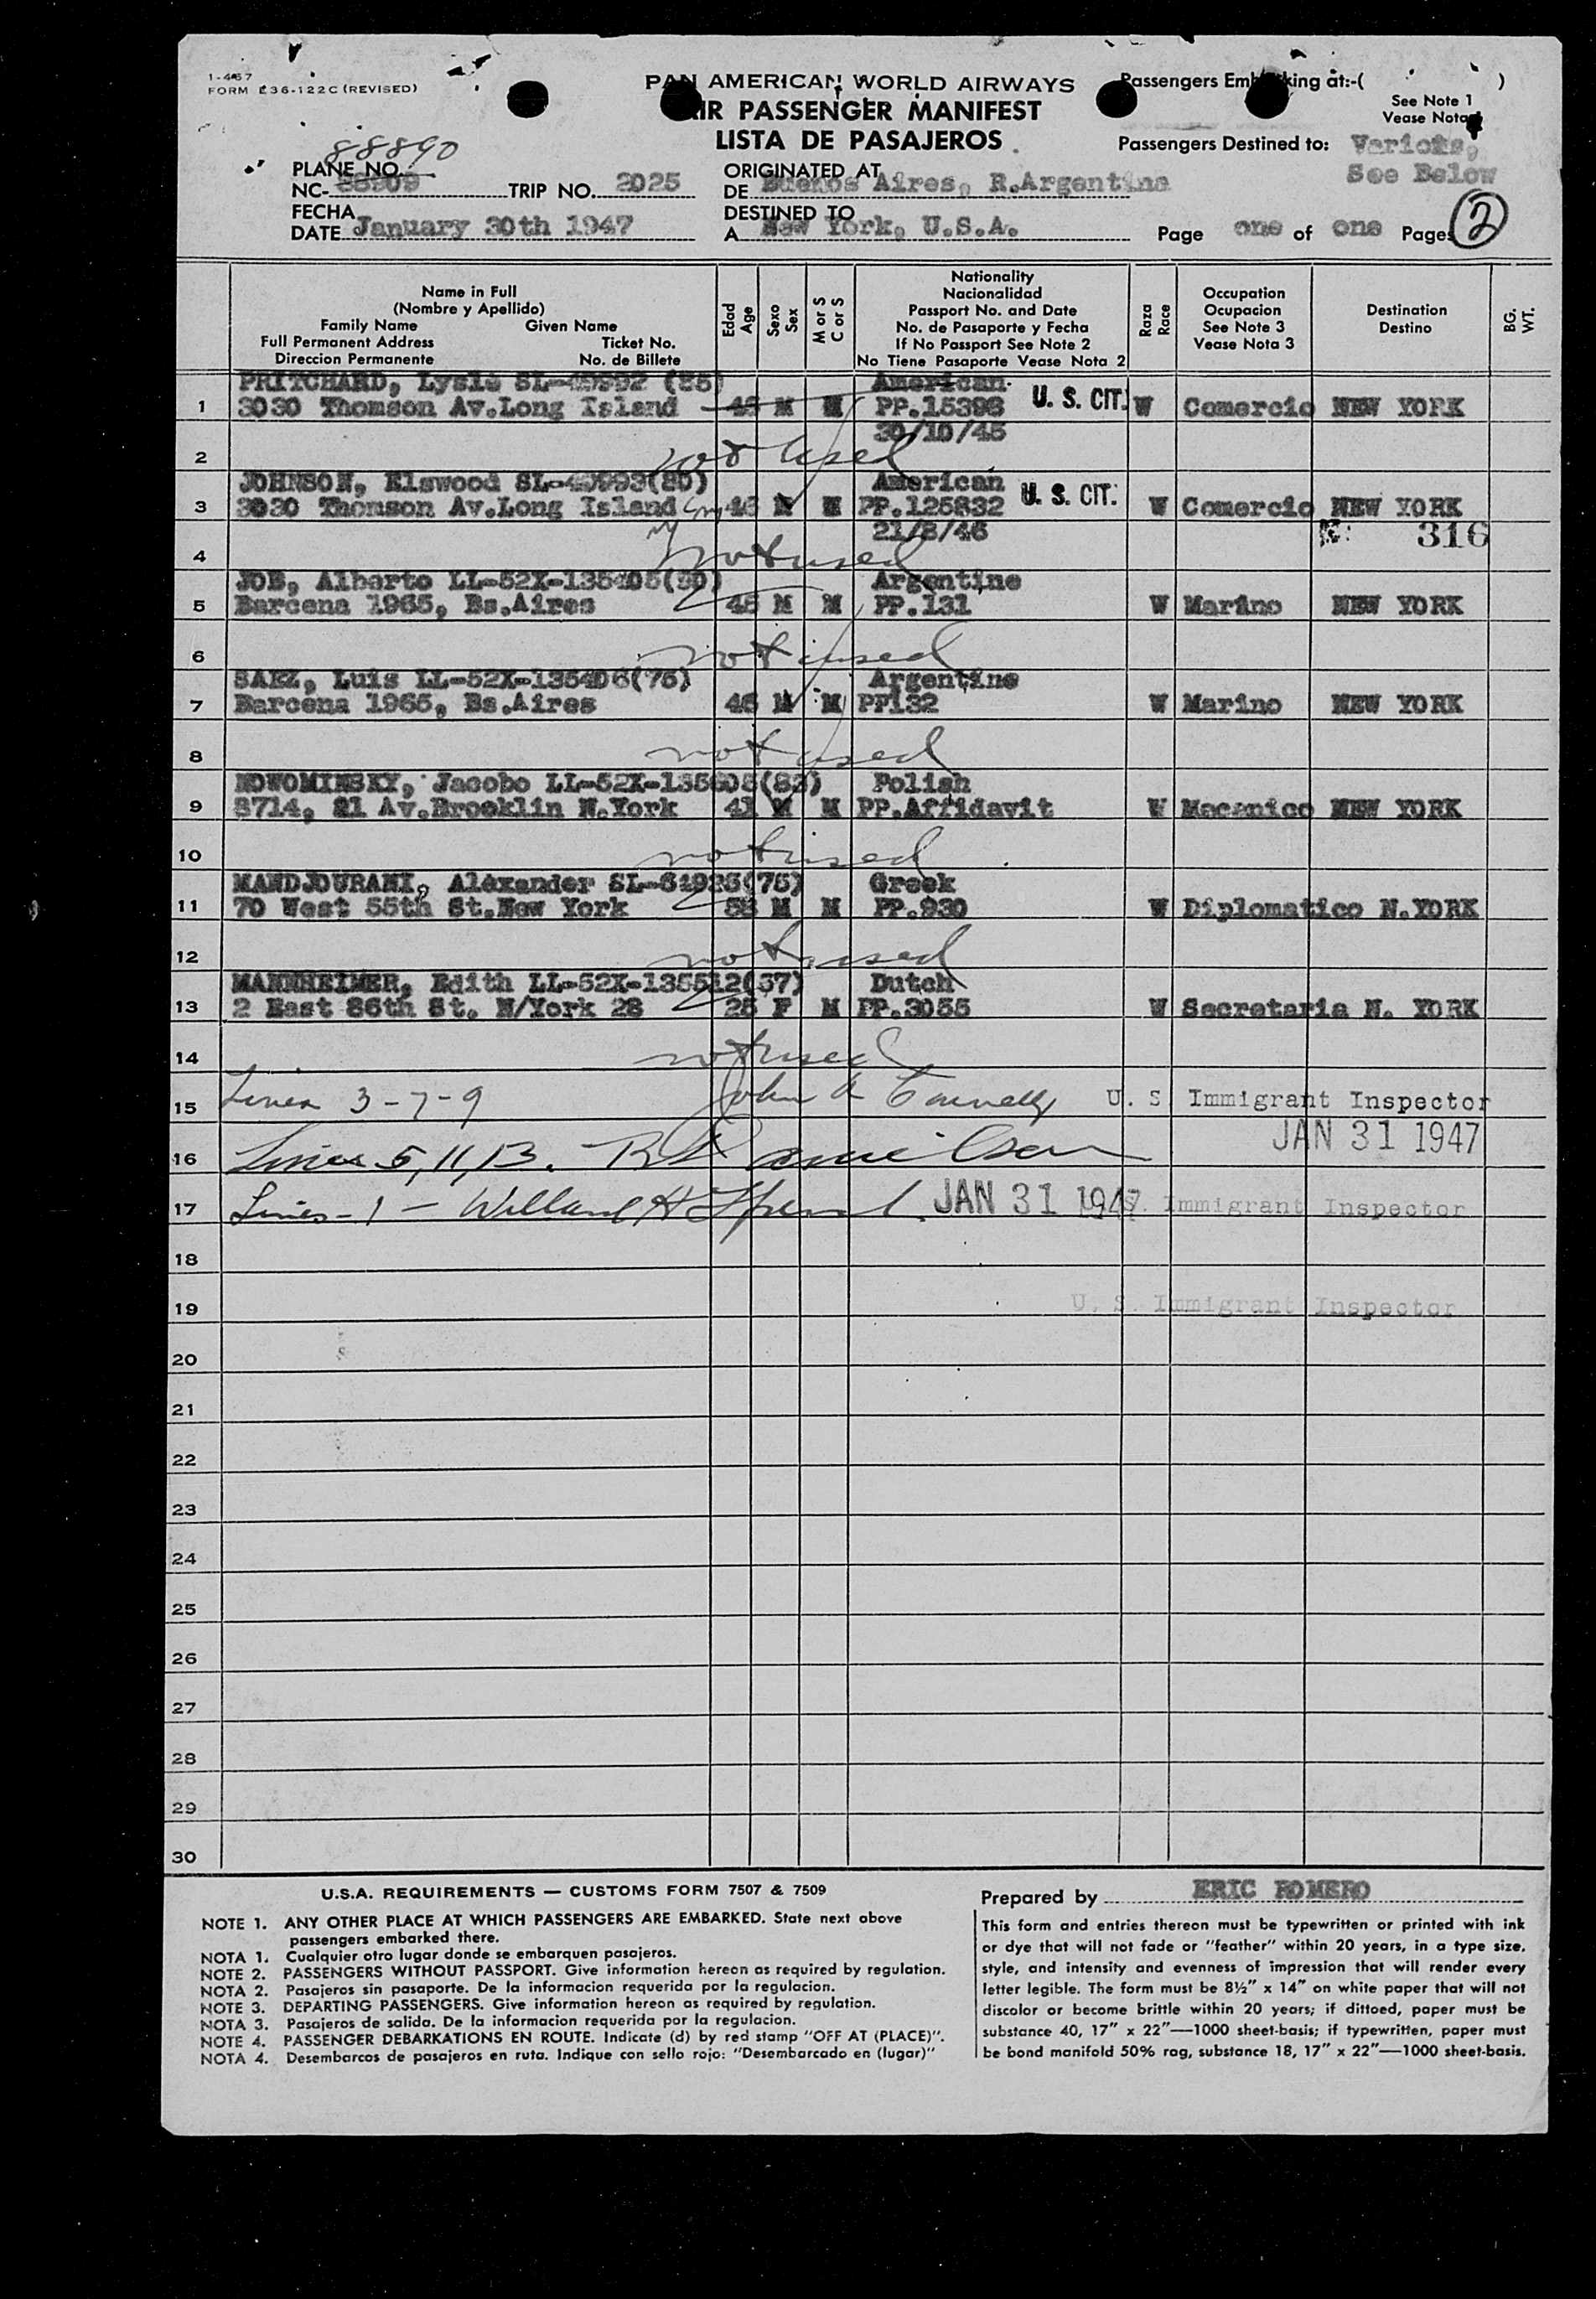 1-467
FORM E36-122C (REVISED)
PAN AMERICAN WORLD AIRWAYS
AIR PASSENGER MANIFEST
LISTA DE PASAJEROS
Passengers Embarking at:-( )
See Note 1
Vease Nota
Passengers Destined to: Varioks,
See Below
88890
PLANE NO.
NC- 88909 TRIP NO. 2025
ORIGINATED AT
DE Buenos Aires, R.Argentina
FECHA
DATE January 30th 1947
DESTINED TO
A New York, U.S.A.
Page one of one Pages 2
Name in Full
(Nombre y Apellido)
Family Name Given Name
Full Permanent Address Ticket No.
Direccion Permanente No. de Billete
Edad Age
Sexo Sex
M or S C or S
Nationality
Nacionalidad
Passport No. and Date
No. de Pasaporte y Fecha
If No Passport See Note 2
No Tiene Pasaporte Vease Nota 2
Raza Race
Occupation
Ocupacion
See Note 3
Vease Nota 3
Destination
Destino
BG. WT.
PRITCHARD, Lysle SL-49992 (85) American
1 3030 Thomson Av.Long Island 46 M M PP.15398 U. S. CIT. W Comercio NEW YORK
30/10/45
2 not used
JOHNSON, Elswood SL-49993(80) American
3 3030 Thomson Av.Long Island 46 M M PP.125832 U. S. CIT. W Comercio NEW YORK
21/8/46 316
4 not used
JOB, Alberto LL-52X-135405(90) Argentine
5 Barcena 1965, Bs.Aires 45 M M PP.131 W Marino NEW YORK
6 not used
SAEZ, Luis LL-52X-135406(75) Argentine
7 Barcena 1965, Bs.Aires 46 M M PP132 W Marino NEW YORK
8 not used
NOWOMINSKY, Jacobo LL-52X-135608(83) Polish
9 8714, 21 Av.Brooklin N.York 41 M M PP.Affidavit W Mecanico NEW YORK
10 not used
MANDJOURANI, Alexander SL-64925(75) Greek
11 70 West 55th St.New York 58 M M PP.930 W Diplomatico N.YORK
12 not used
MANNHEIMER, Edith LL-52X-135512(57) Dutch
13 2 East 86th St. N/York 28 25 F M PP.3055 W Secretaria N. YORK
14 not used
15 Lines 3-7-9 John A U. S Immigrant Inspector
16 Lines 5, 11, 13. JAN 31 1947
17 Lines - 1 - Willard H JAN 31 1947 U. S. Immigrant Inspector
18
19 U. S. Immigrant Inspector
20
21
22
23
24
25
26
27
28
29
30
U.S.A. REQUIREMENTS — CUSTOMS FORM 7507 & 7509
NOTE 1. ANY OTHER PLACE AT WHICH PASSENGERS ARE EMBARKED. State next above
passengers embarked there.
NOTA 1. Cualquier otro lugar donde se embarquen pasajeros.
NOTE 2. PASSENGERS WITHOUT PASSPORT. Give information hereon as required by regulation.
NOTA 2. Pasajeros sin pasaporte. De la informacion requerida por la regulacion.
NOTE 3. DEPARTING PASSENGERS. Give information hereon as required by regulation.
NOTA 3. Pasajeros de salida. De la informacion requerida por la regulacion.
NOTE 4. PASSENGER DEBARKATIONS EN ROUTE. Indicate (d) by red stamp "OFF AT (PLACE)".
NOTA 4. Desembarcos de pasajeros en ruta. Indique con sello rojo: "Desembarcado en (lugar)"
Prepared by ERIC ROMERO
This form and entries thereon must be typewritten or printed with ink
or dye that will not fade or "feather" within 20 years, in a type size,
style, and intensity and evenness of impression that will render every
letter legible. The form must be 8½" x 14" on white paper that will not
discolor or become brittle within 20 years; if dittoed, paper must be
substance 40, 17" x 22"—1000 sheet-basis; if typewritten, paper must
be bond manifold 50% rag, substance 18, 17" x 22"—1000 sheet-basis.